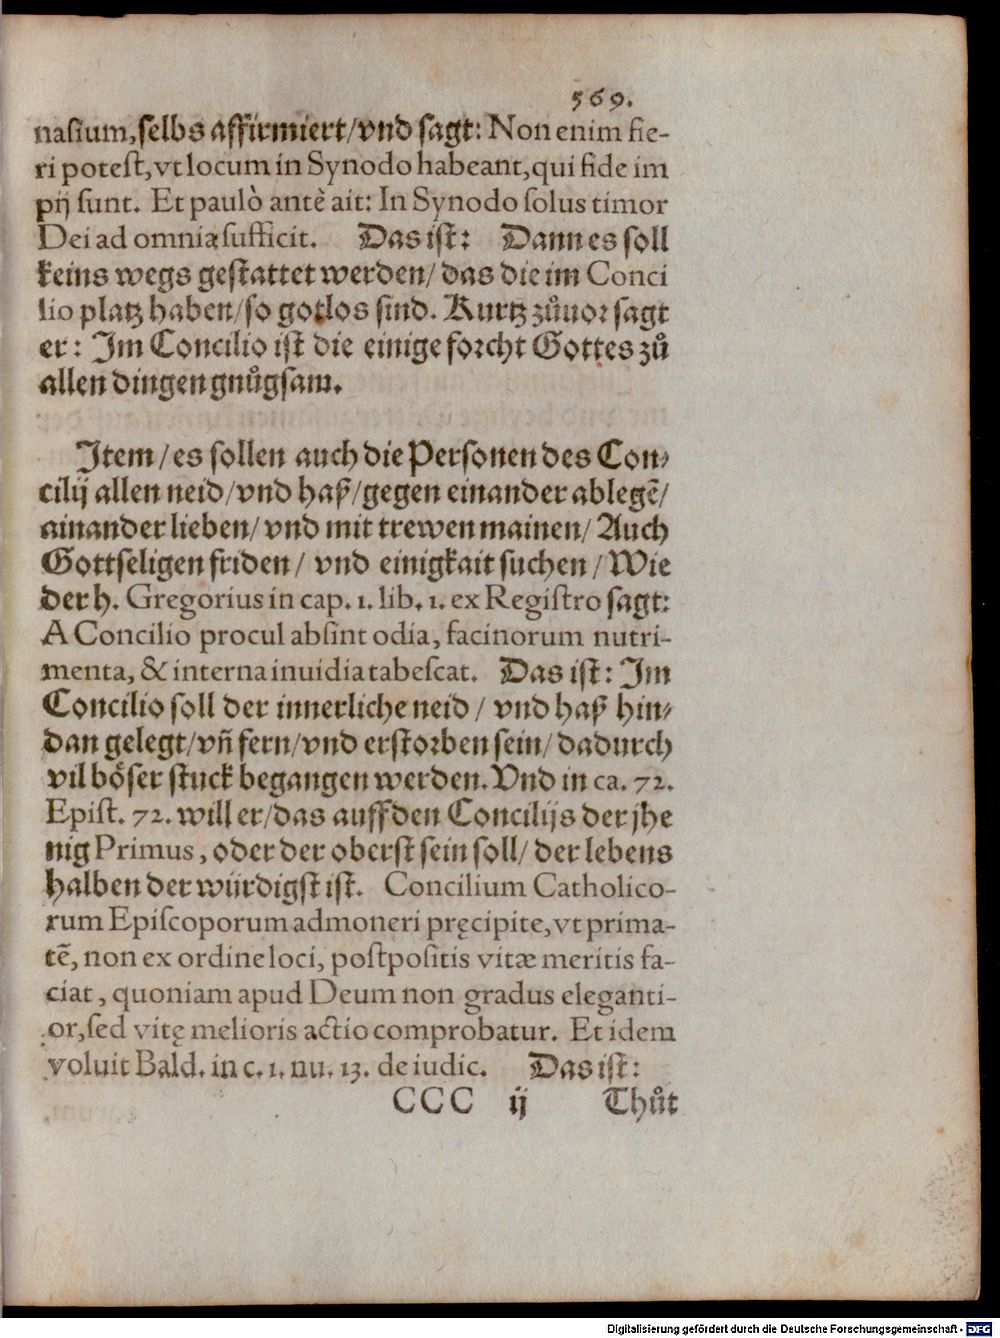 569.
nasium, selbs affirmiert/vnd sagt: Non enim fie-
ri potest, vt locum in Synodo habeant, qui fide im
pij sunt. Et paulò antè ait: In Synodo solus timor
Dei ad omnia sufficit. Das ist: Dann es soll
keins wegs gestattet werden/ das die im Conci
lio platz haben/so gotlos sind. Kurtz zůuor sagt
er: Im Concilio ist die einige forcht Gottes zů
allen dingen gnůgsam.
Item/es sollen auch die Personen des Con-
cilij allen neid/vnd haß/gegen einander ablegẽ/
ainander lieben/ vnd mit trewen mainen/ Auch
Gottseligen friden/ vnd einigkait suchen/ Wie
der h. Gregorius in cap. 1. lib. 1. ex Registro sagt:
A Concilio procul absint odia, facinorum nutri-
menta, & interna inuidia tabescat. Das ist: Im
Concilio soll der innerliche neid / vnd haß hin-
dan gelegt/vñ fern/vnd erstorben sein/ dadurch
vil böser stuck begangen werden. Vnd in ca. 72.
Epist. 72. will er/das auff den Concilijs der jhe
nig Primus, oder der oberst sein soll/ der lebens
halben der würdigst ist. Concilium Catholico-
rum Episcoporum admoneri pręcipite, vt prima-
tẽ, non ex ordine loci, postpositis vitæ meritis fa-
ciat, quoniam apud Deum non gradus eleganti-
or, sed vitę melioris actio comprobatur. Et idem
voluit Bald. in c. 1. nu. 13. de iudic. Das ist:
CCC ij Thůt
Digitalisierung gefördert durch die Deutsche Forschungsgemeinschaft - DFG